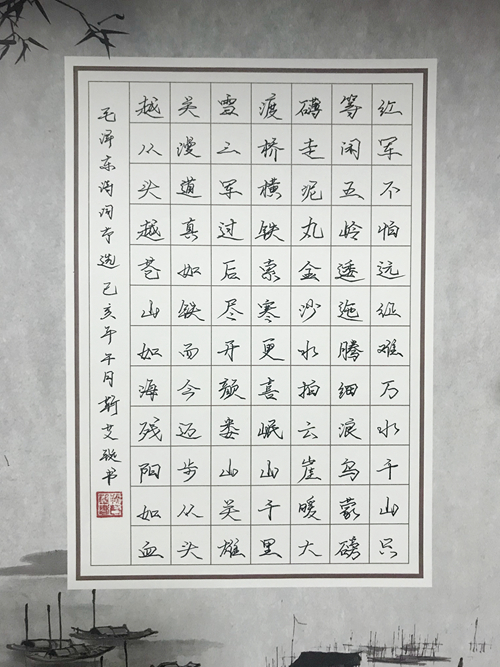 红军不怕远征难万水千山只
等闲五岭逶迤腾细浪乌蒙磅
礴走泥丸金沙水拍云崖暖大
渡桥横铁索寒更喜岷山千里
雪三军过后尽开颜娄山关雄
关漫道真如铁而今迈步从头
越从头越苍山如海残阳如血
毛泽东诗词节选己亥年午月靳艾书